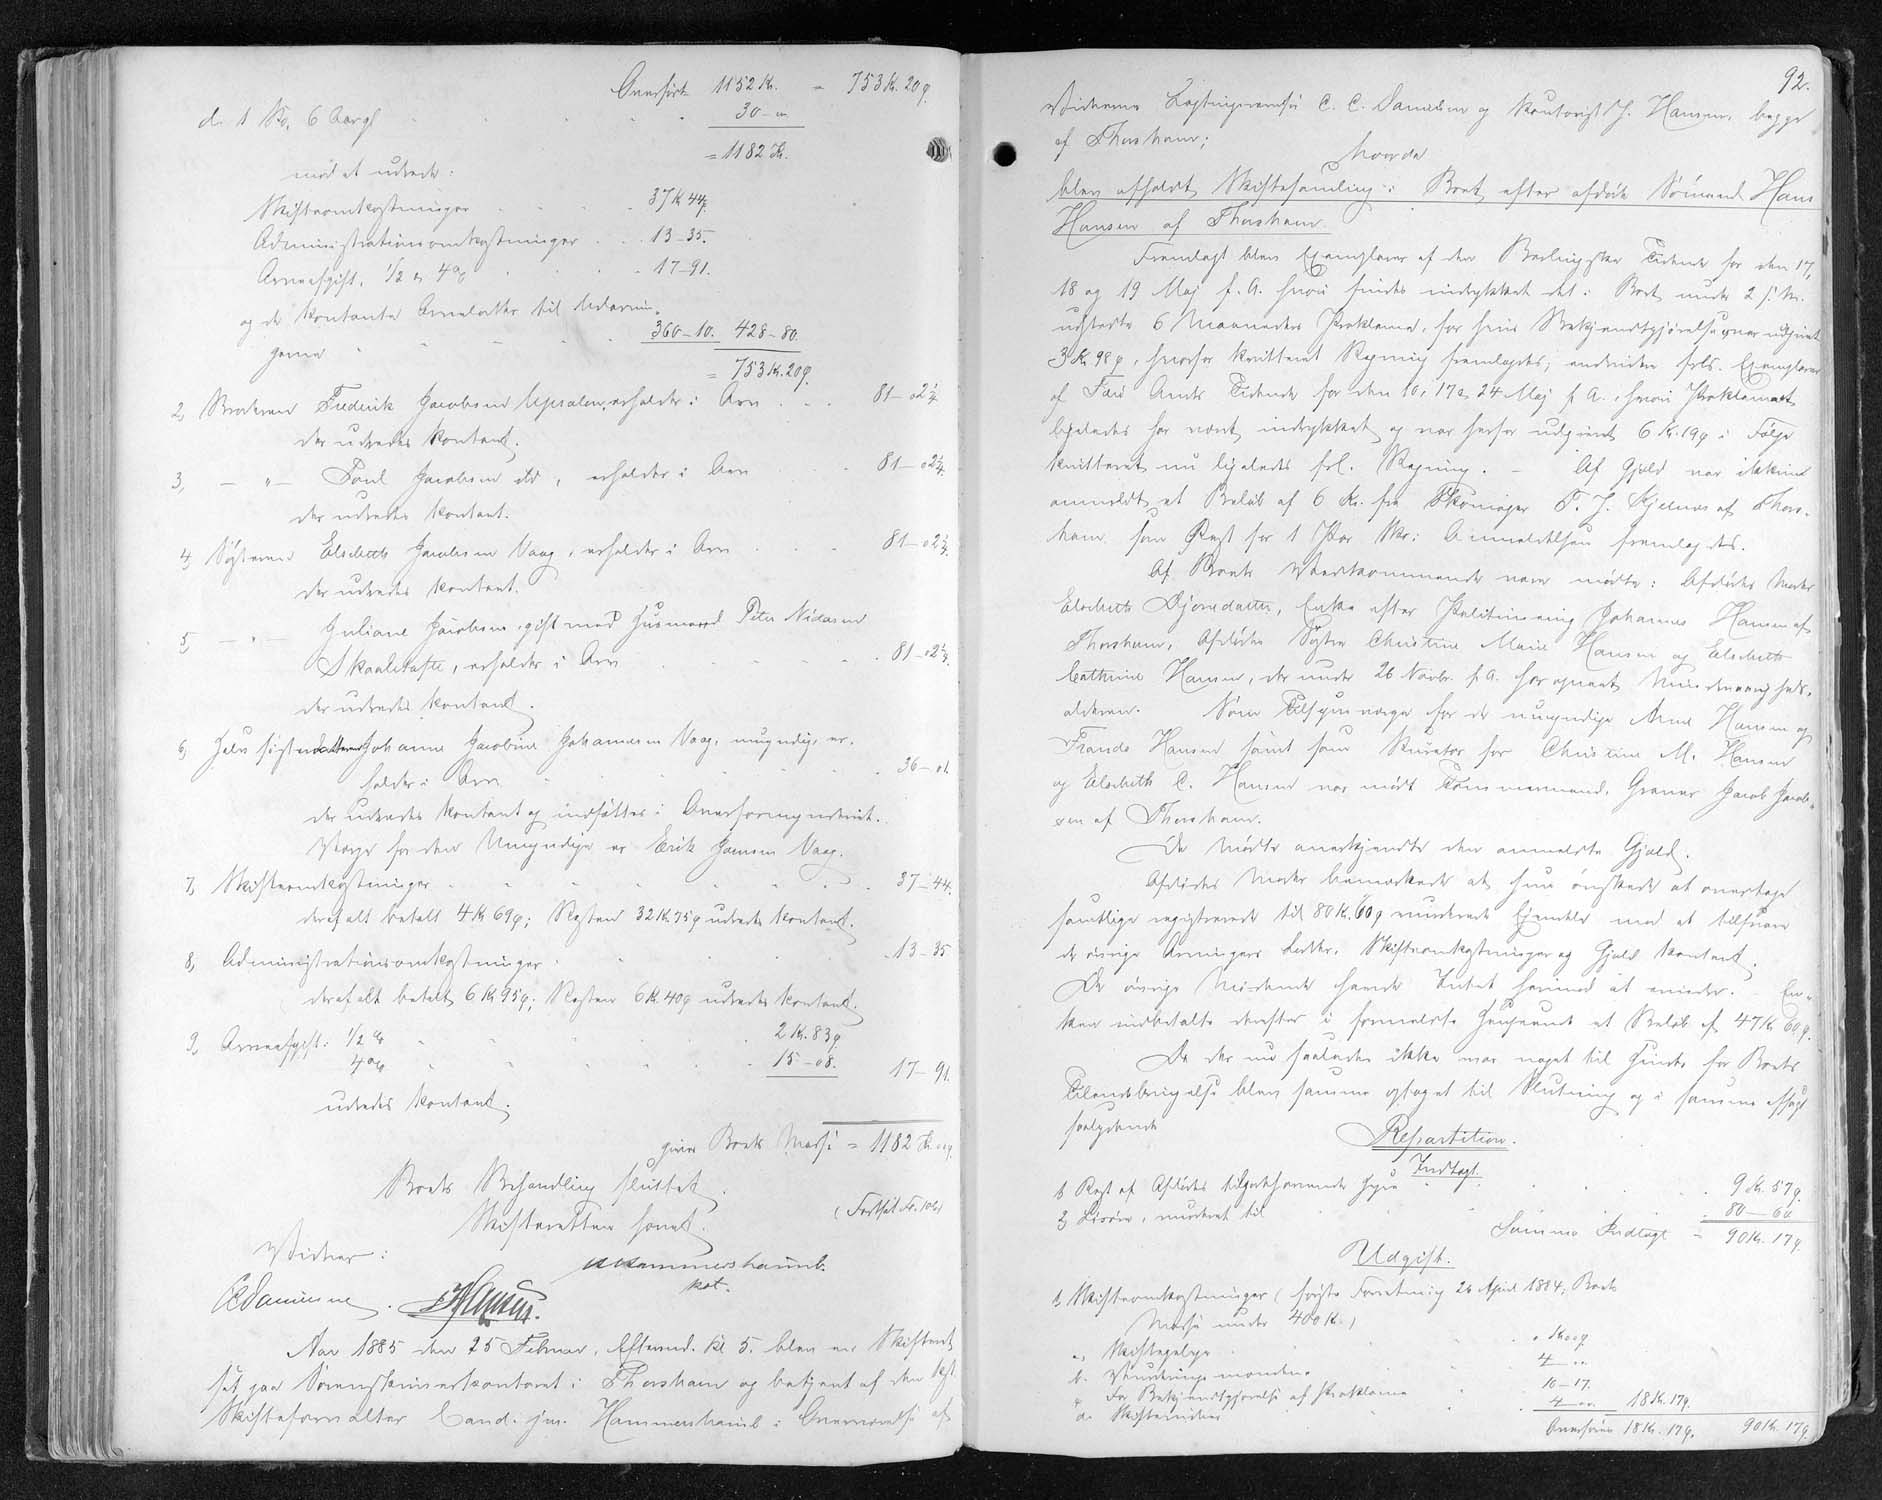 Overført 1152 Kr. = 753 Kr. 20 Ø.
d. 1 Ko, 6 Aar gl. 30 - "
= 1182 Kr.
mod at udrede:
Skifteomkostninger 37 Kr 44 Ø.
Administrationsomkostninger 13 - 35.
Arveafgift, 1/2 & 4 % 17 - 91.
og de kontante Arvelodder til Medarvin-
gerne 360 - 10. 428 - 80.
= 753 Kr. 20 Ø.
2, Broderen Frederik Jacobsen Upsalen, erholder i Arv 81 - 02 1/4
der udredes kontant.
3, - " - Poul Jacobsen ibd, erholder i Arv 81 - 02 1/4.
der udredes kontant.
4, Søsteren Elsebeth Jacobsen Vaag, erholder i Arv 81 - 02 1/4.
der udredes kontant.
5, - " - Juliane Jacobsen, gift med Husmand Peter Nidasen
Skaaletofte, erholder i Arv 81 - 02 1/4.
der udredes kontant.
6, Halvsøsterdatteren Johanne Jacobine Johannesen Vaag, umyndig, er-
holder i Arv 36 - 01.
der udredes kontant og indsættes i Overformynderiet.
Værge for den Umyndige er Erik Joensen Vaag.
7, Skifteomkostninger 37 - 44.
deraf alt betalt 4 Kr 69 Ø; Resten 32 Kr. 75 Ø udredes kontant.
8, Administrationsomkostninger 13 - 35
deraf alt betalt 6 Kr 95 Ø; Resten 6 Kr. 40 Ø udredes kontant.
9, Arveafgift: 1/2 % 2 Kr. 83 Ø
4 % 15 - 08. 17 - 91.
udredes kontant.
giver Boets Masse = 1182 Kr. 00 Ø.
Boets Behandling sluttet.
Skifteretten hævet. (Fortsat Fo. 106)
Vidner: Hammershaimb.
kst.
CCDanielsen. JHansen.
Aar 1885 den 25 Februar, Eftermd. Kl 5. blev en Skifteret
sat paa Sorenskriverkontoret i Thorshavn og betjent af den kst
Skifteforvalter Cand. jur. Hammershaimb i Overværelse af
92.
Vidnerne Lagtingsmand C. C. Danielsen og Kontorist J. Hansen, begge
af Thorshavn;
hvorda
blev afholdt Skiftesamling i Boet efter afdøde Sømand Hans
Hansen af Thorshavn.
Fremlagt blev Exemplarer af den Berlingske Tidende for den 17,
18 og 19 Maj f. A. hvori findes indrykket det i Boet under 2 s. M.
udstedte 6 Maaneders Proklama, for hvis Bekjendtgjørelse var udgivet
3 Kr 98 Ø, hvorfor kvitteret Regning fremlagdes; endvidere frls. Exemplarer
af Færø Amts Tidende for den 10, 17 & 24 Maj f A., hvori Proklamaet
ligeledes har været indrykket og var herfor udgivet 6 Kr. 19 Ø i Følge
kvitteret nu ligeledes frl. Regning. - Af Gjæld var ikkun
anmeldt et Beløb af 6 Kr. fra Skomager T. J. Kjelnæs af Thors-
havn som Rest for 1 Par Sko: Anmeldelsen fremlagdes.
Af Boets Vedkommende vare mødte: Afdødes Moder
Elsebeth Djonedatter, Enke efter Politimand Johannes Hansen af
Thorshavn, Afdødes Søstre Christine Marie Hansen og Elsebeth
Cathrine Hansen, der under 26 Novbr. f. A. har opnaaet Mindreaarigheds-
alderen. Som Tilsynsværge for de umyndige Arne Hansen og
Frands Hansen samt som Kurator for Christine M. Hansen
og Elsebeth C. Hansen var mødt Tømmermand, Graver Jacob Jacob-
sen af Thorshavn.
De Mødte anerkjendte den anmeldte Gjæld.
Afdødes Moder bemærkede at hun ønskede at overtage
samtlige registrerede til 80 Kr. 60 Ø vurderede Ejendele mod at tilsvare
de øvrige Arvingers Lodder, Skifteomkostninger og Gjæld kontant.
De øvrige Mødende havde Intet herimod at erindre. En-
ken indbetalte derefter i formeldte Henseende et Beløb af 47 Kr 60 Ø.
Da der nu saaledes ikke var noget til Hinder for Boets
Tilendebringelse blev samme optaget til Slutning og i samme affagt
saalydende
Repartition.
Indtægt.
1, Rest af Afdødes tilgodehavende Hyre 9 Kr. 57 Ø.
2, Løsøre, vurderet til 80 - 60
Summa Indtægt = 90 Kr. 17 Ø.
Udgift.
1, Skifteomkostninger (første Forretning 26 April 1884; Boets
Masse under 400 Kr.)
a, Skiftegebyr " Kr. " Ø
b. Vurderingsmændene 4 - "
c. For Bekjendtgjørelse af Proklama 10 - 17.
d. Skiftevidner 4 - " 18 Kr. 17 Ø.
Overføres 18 Kr. 17 Ø. 90 Kr. 17 Ø.